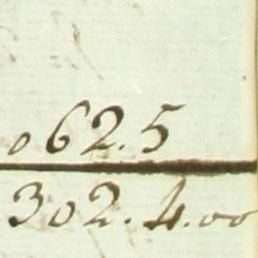 062.5
302.4.00